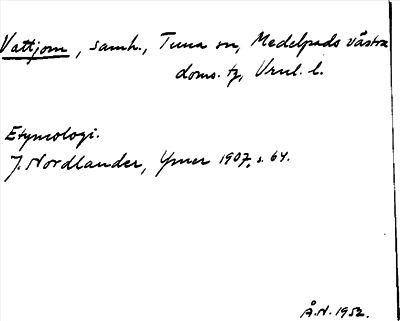 Vattjom, samh., Tuna sn, Medelpads västra
doms. tg, Vrnl. l.
Etymologi.
J. Nordlander, Ymer 1907, s. 64.
Å.N. 1952.